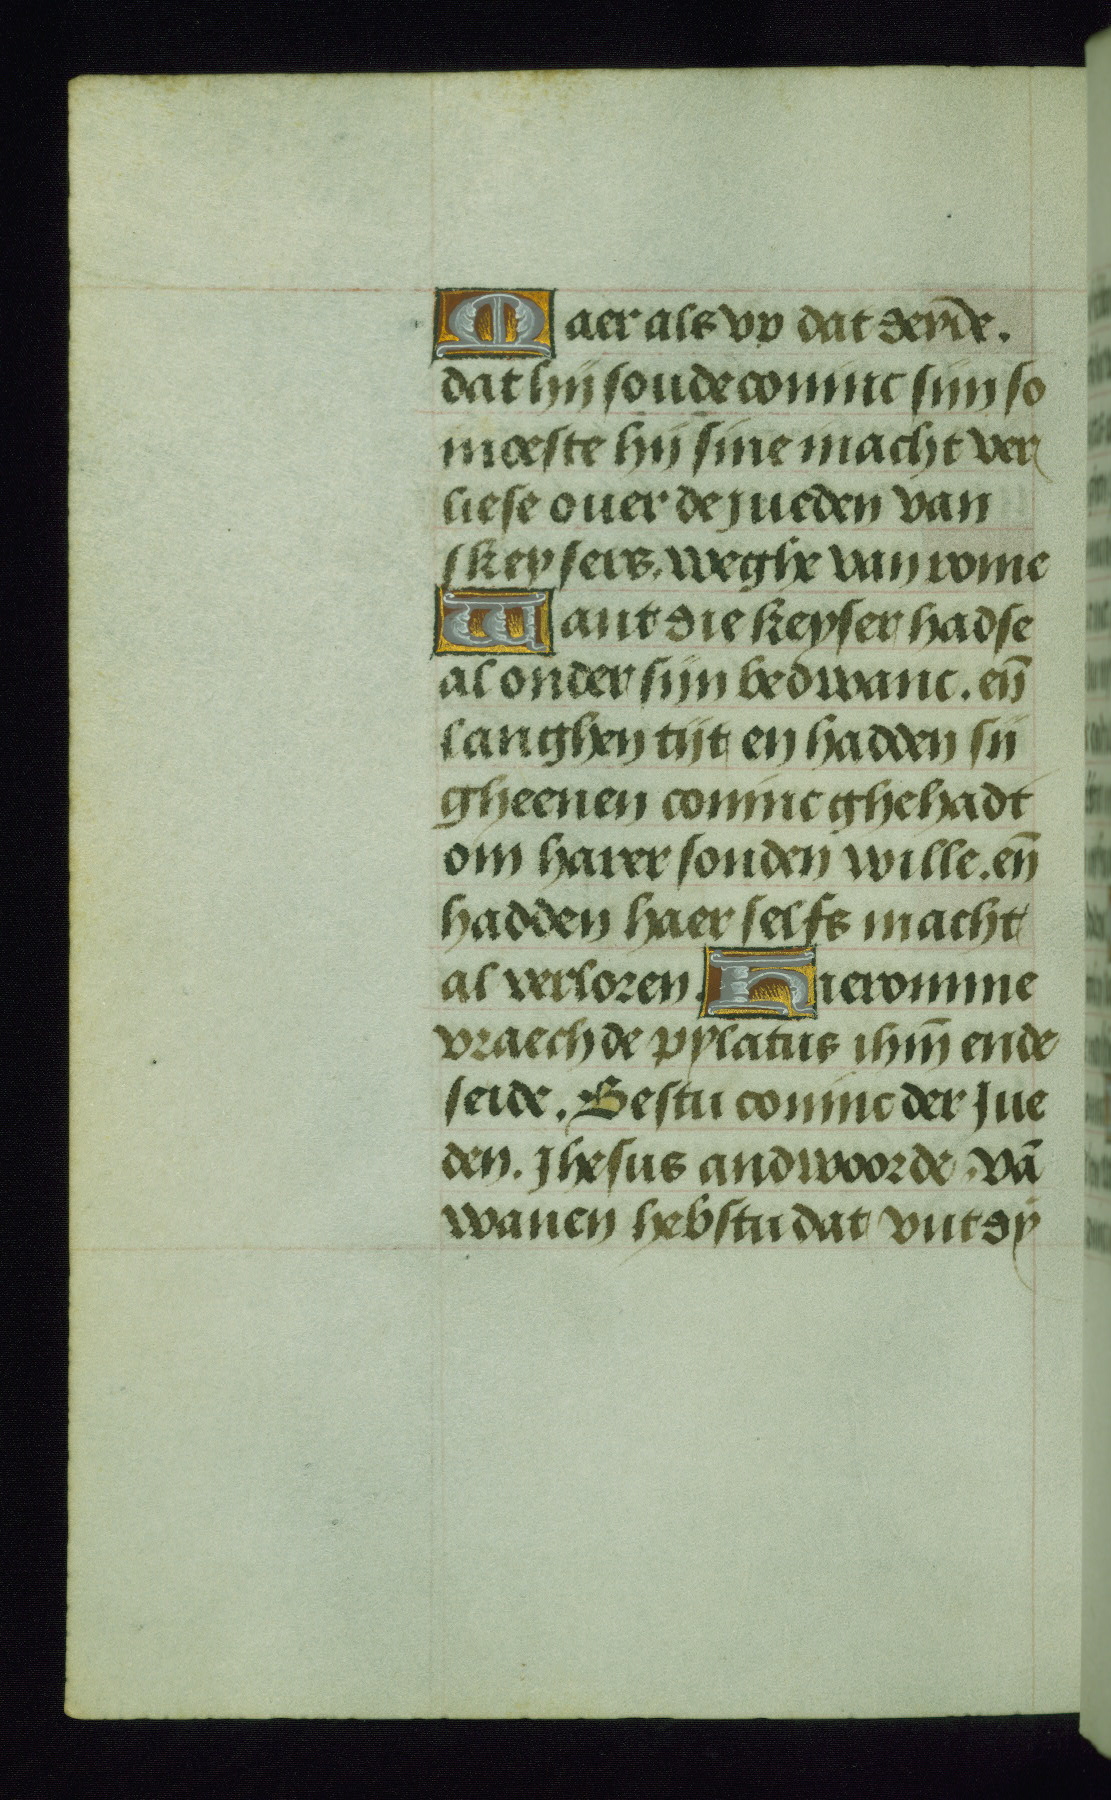 Maer als vp dat derde.
dat hij soude coninc sijn so
moeste hij sine macht ver
liese ouer de jueden van
skeysers. weghe van rome
Want die keyser hadse
al onder sijn bedwanc. en̄
langhen tijt en hadden sij
gheenen coninc ghehadt
om harer sonden wille. en̄
hadden haer selfs macht
al verloren. Hieromme
vraechde pylatus ihm̄ ende
seide. Bestu coninc der Jue
den. Jhesus andwoorde. vā
wanen hebstu dat vut dy